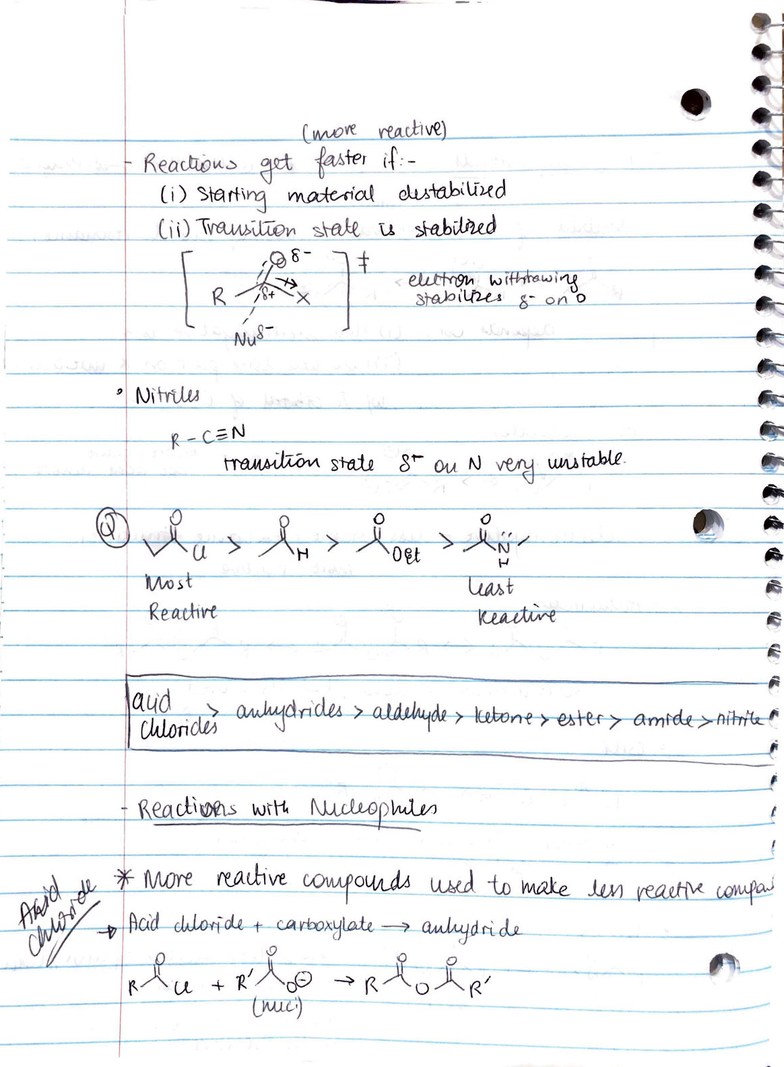 (more reactive)
- Reactions get faster if:-
(i) Starting material destabilized
(ii) Transition state is stabilized
O δ-
R δ+ X
Nu δ-
‡
electron withrawing
stabilizes δ- on O
• Nitriles
R-C≡N
transition state δ- on N very unstable.
Q O Cl > O H > O OEt > O N H
Most
Reactive
Least
Reactive
acid chlorides > anhydrides > aldehyde > ketone > ester > amide > nitrile
- Reactions with Nucleophiles
Acid
chloride
* More reactive compounds used to make less reactive
→ Acid chloride + carboxylate → anhydride
R O Cl + R' O O⊖ → R O O O R'
(nuc)